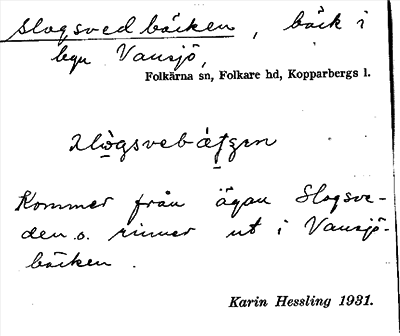 Slogsvedbäcken, bäck i
byn Vansjö,
Folkärna sn, Folkare hd, Kopparbergs l.
Kommer från ägan Slogsve-
den o. rinner ut i Vansjö-
bäcken.
Karin Hessling 1931.